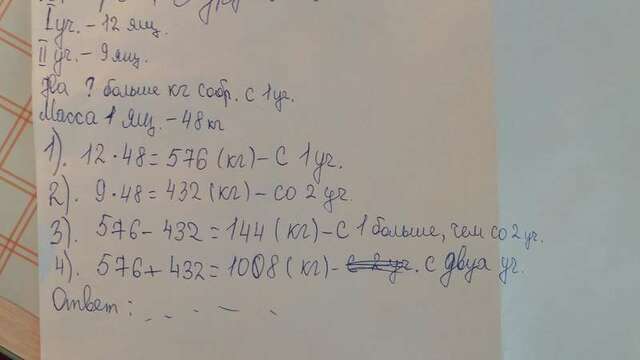 I уч. - 12 ящ.
II уч. - 9 ящ.
На ? больше кг собр. с 1 уч.
Масса 1 ящ. - 48 кг
1). 12 · 48 = 576 (кг) - с 1 уч.
2). 9 · 48 = 432 (кг) - со 2 уч.
3). 576 - 432 = 144 (кг) - с 1 больше, чем со 2 уч.
4). 576 + 432 = 1008 (кг) - с 2 уч. с двух уч.
Ответ: